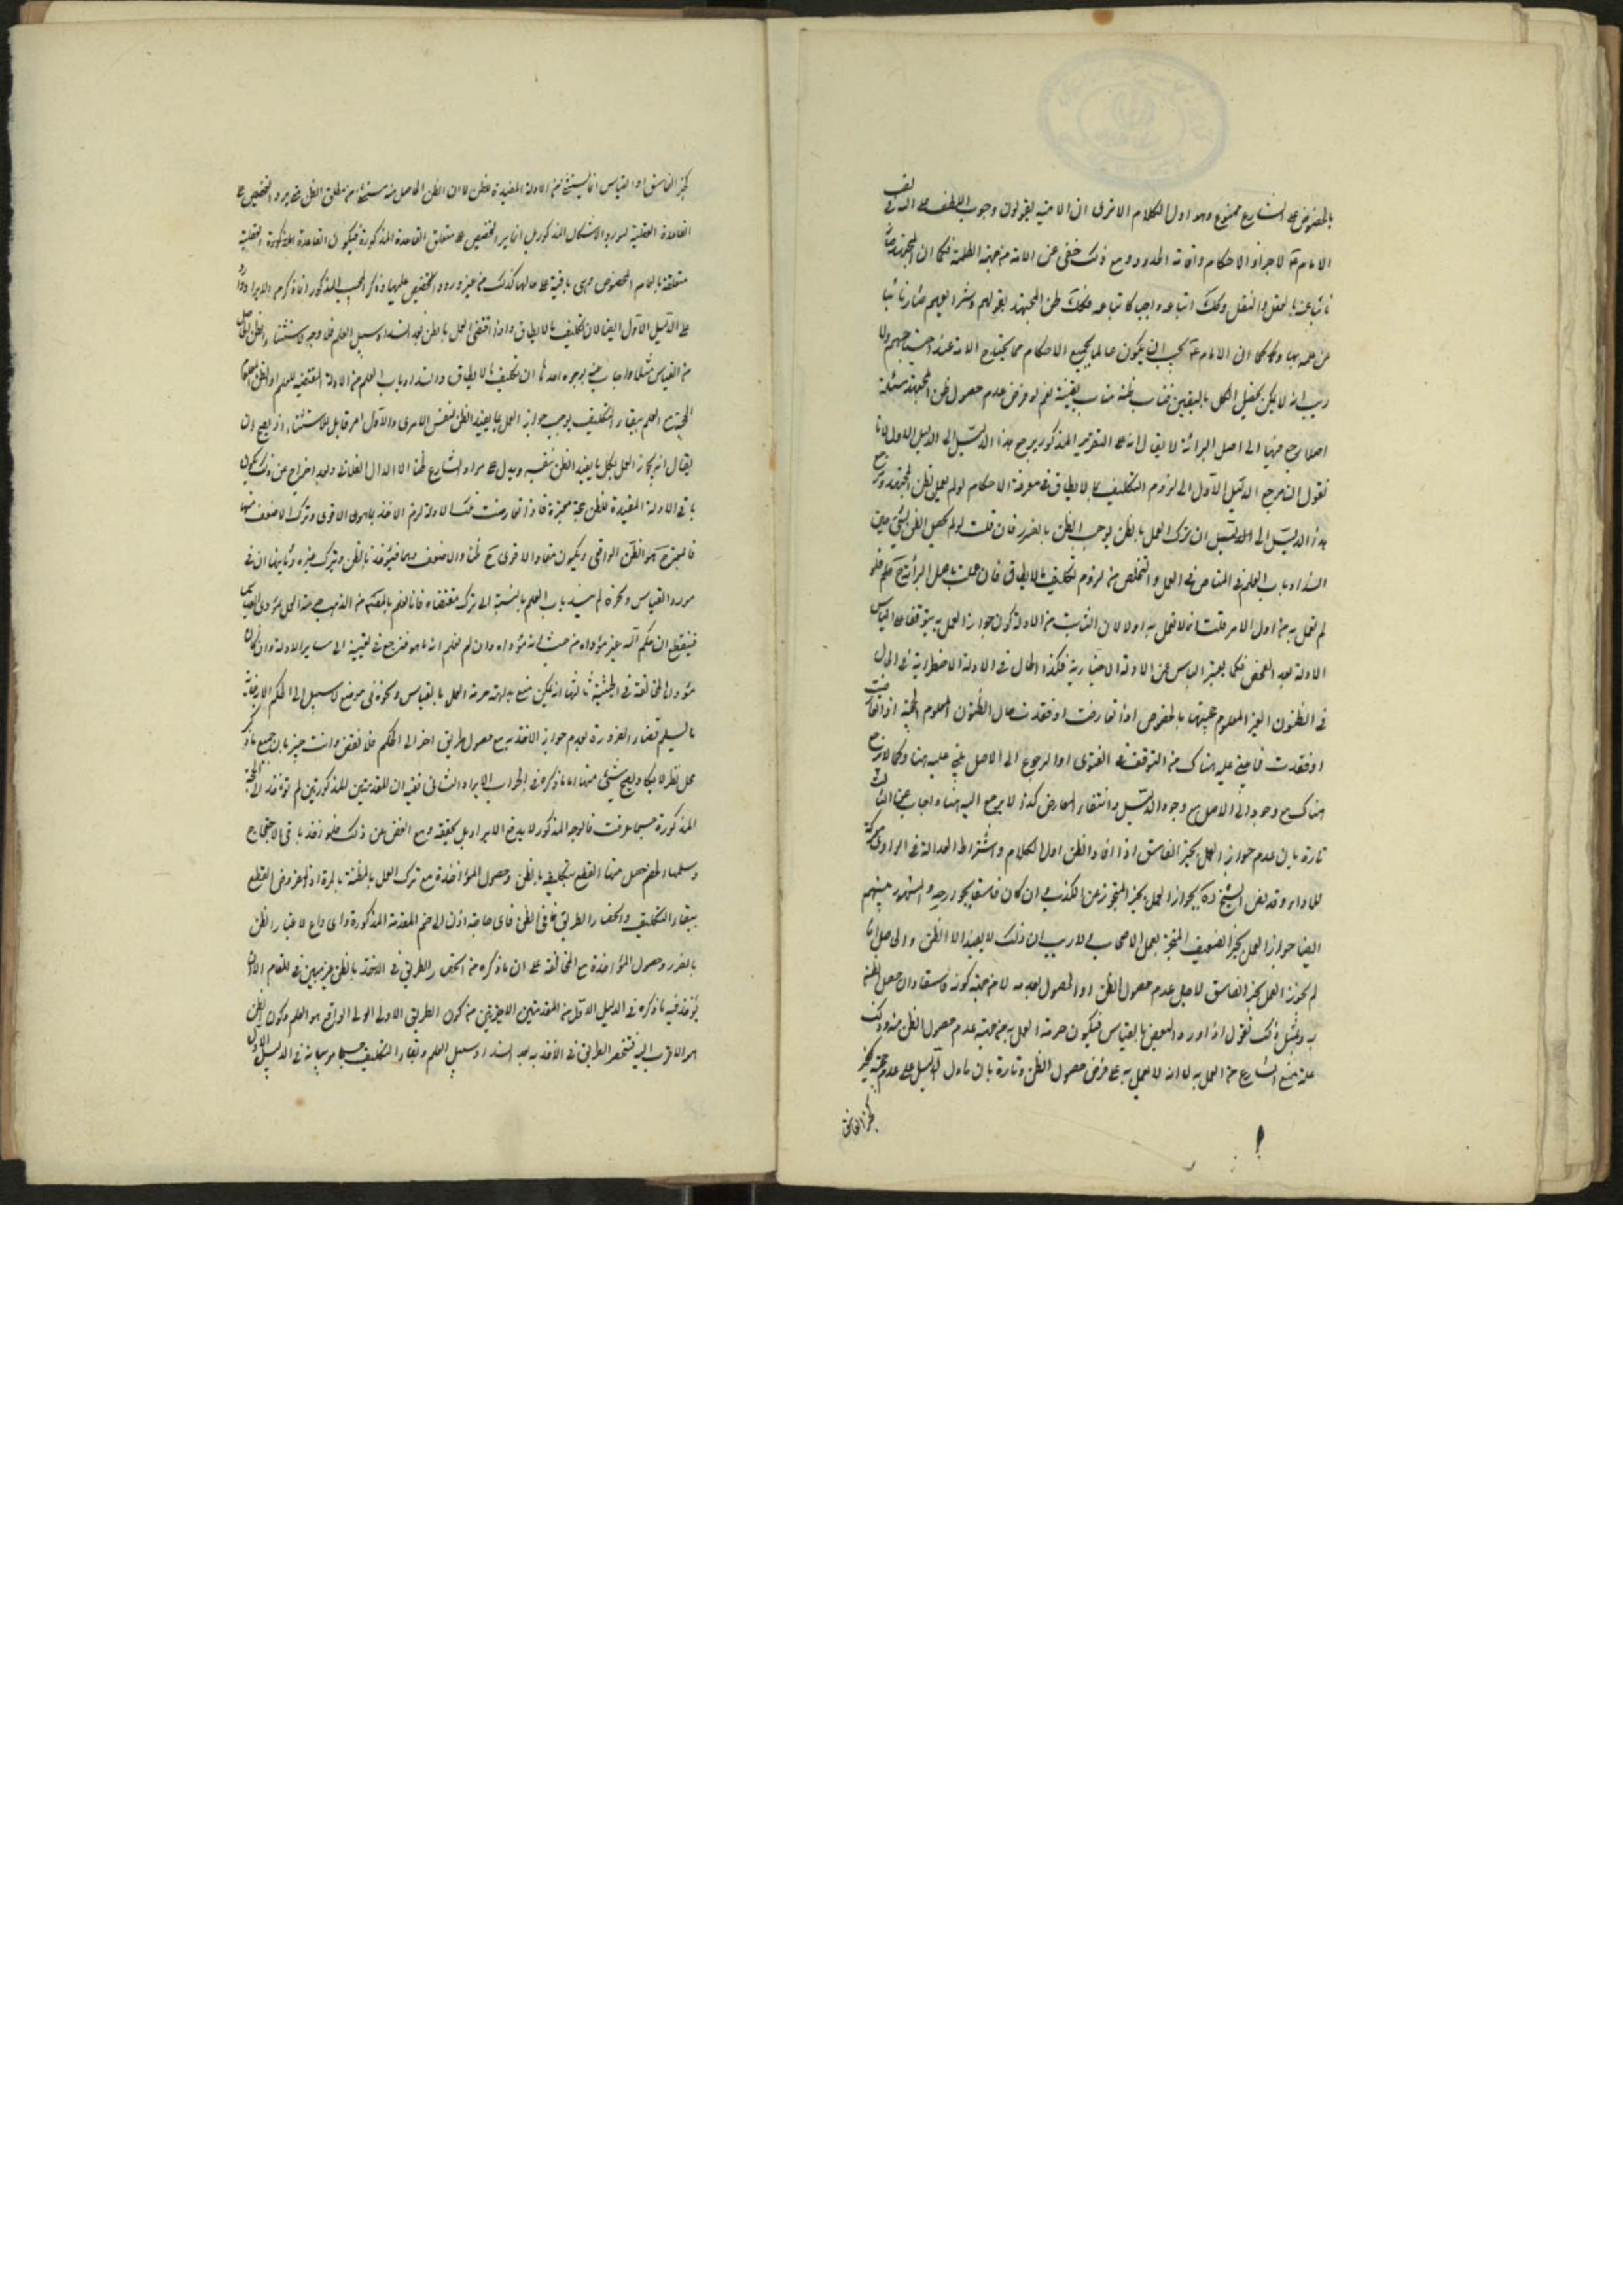 بالخصوص على الشارع ممنوع وهو اول الكلام الا ترى ان الامامية يقولون وجوب اللطف على الله في
الامام لاجراء الاحكام واقامة الحدود ومع ذلك خفى عن الامة من جهة الظلمة فكما ان المجتهد صار
نائبا عنه بالعقل والنقل وكك اتباعه واجب كاتباعه فكك ظن المجتهد بقولهم وشرائعهم صار نائبا
عن علمه بها وكما ان الامام يجب ان يكون عالما بجميع الاحكام مما يحتاج الامة عند احتياجهم ولا
ريب انه لا يمكن تحصيل الكل باليقين فناب ظنه مناب يقينه نعم لو فرض عدم حصول ظن المجتهد بمسئلة
اصلا يرجع فيها الى اصل البرائة لا يقال انه على التقرير المذكور يرجع هذا الدليل الى الدليل الاول لانا
نقول ان مرجع الدليل الاول الى لزوم التكليف بما لا يطاق في معرفة الاحكام لو لم يعمل بظن المجتهد ومرجع
هذا الدليل الى ان ترك العمل بالظن يوجب الظن بالضرر فان قلت لو لم يحصل الظن بشئ حين
انسداد باب العلم فما المناص في العمل والتخلص من لزوم تكليف ما لا يطاق فان عملت باصل البرائة ح فلم
لم تعمل به من اول الامر قلت انا لا نعمل به اولا لان الثابت من الادلة كون جواز العمل به يتوقف على الياس
الادلة بعد الفحص فكما يعتبر الياس عن الادلة الاختيارية فكذا الحال في الادلة الاضطرارية فالحال
في الظنون الغير المعلوم حجيتها بالخصوص اذا تعارضت او فقدت حال الظنون المعلوم الحجية اذا تعارضت
او فقدت فما يبنى عليه هناك من التوقف في الفتوى او الرجوع الى الاصل يبنى عليه هنا وكما لا يرجع
هناك مع وجود الدليل وانتفاء المعارض كذا لا يرجع اليه هنا واجاب عن الثالث
تارة بان عدم جواز العمل بخبر الفاسق اذا افاد الظن اول الكلام واشتراط العدالة في الراوي
للاداء وقد نص الشيخ ره بجواز العمل بخبر المتحرز عن الكذب وان كان فاسقا بجوارحه والمشهور بينهم
ايضا جواز العمل بخبر الضعيف المنجبر بعمل الاصحاب ولا ريب ان ذلك لا يفيد الا الظن والحاصل انا
لم نجوز العمل بخبر الفاسق لاجل عدم حصول الظن او الحصول لعدمه لا من جهة كونه فاسقا وان حصل الظن
به وبمثل ذلك نقول اذا ورد النقض بالقياس فيكون حرمة العمل به من جهة عدم حصول الظن منه وذلك
علة منع الشارع من العمل به لا انه لا يعمل به على فرض حصول الظن وتارة بان ما دل الدليل على عدم حجية كخبر
كخبر الفاسق
كخبر الفاسق او القياس انما يستثنى من الادلة المفيدة للظن لا ان الظن الحاصل منه مستثنى من مطلق الظن حتى يرد التخصيص على
القاعدة العقلية ليورد الاشكال المذكور بل انما يرد التخصيص على متعلق القاعدة المذكورة فيكون القاعدة المذكورة العقلية
متعلقة بالعام المخصوص وهي باقية على حالها كذلك من غير ورود التخصيص عليها وذكر المجيب المذكور انما ذكر من الايراد وارد
على الدليل الاول ايضا لان تكليف ما لا يطاق واذا اقتضى العمل بالظن بعد انسداد سبيل العلم فلا وجه لاستثناء الظن الحاصل
من القياس مثلا واجاب عنه بوجوه احدها ان تكليف ما لا يطاق وانسداد باب العلم من الادلة المقتضية للعلم او الظن المعلوم
الحجية مع العلم ببقاء التكليف يوجب جواز العمل بما يفيد الظن في نفس الامر والاول امر قابل للاستثناء اذ يصح ان
يقال انه يجوز العمل بكل ما يفيد الظن بنفسه ويدل على مراد الشارع ظنا الا الدال الفلاني وبعد اخراج عن ذلك يكون
باقي الادلة المفيدة للظن حجة معتبرة فاذا تعارضت تلك الادلة لزم الاخذ بما هو الاقوى وترك الاضعف منها
فالمعتبر ح هو الظن الواقعي ويكون مفاد الاقوى ح ظنا والاضعف وهما فيؤخذ بالظن ويترك غيره وثانيها ان في
مورد القياس ونحوه لم ينسد باب العلم بالنسبة الى ترك مقتضاه فانا نعلم بالضرورة من المذهب حرمة العمل بمؤدى القياس
فنقطع ان حكم الله غير مؤداه من حيث انه مؤداه وان لم نعلم انه ما هو فنرجع في تعيينه الى سائر الادلة وان كان
مؤداها الموافقة في الحيثية ثالثها انه يمكن منع بداهة حرمة العمل بالقياس ونحوه في موضع لا سبيل الى الحكم الا به غاية
ما يسلم قضاء الضرورة بعدم جواز الاخذ به مع حصول طريق اخر الى الحكم فلا نقض وانت خبير بان جميع ما ذكر
محل نظر لا يكاد يصح شئ منها اما ما ذكره في الجواب عن الايراد الثاني ففيه ان المقدمتين المذكورتين لم تؤخذ في الحجة
المذكورة حسبما عرفت فالوجه المذكور لا يدفع الايراد بل يحققه ومع الغض عن ذلك فلو اخذ باقي الاحتجاج
وسلمها الخصم حصل منها القطع بتكليفه بالظن وحصول المؤاخذة مع ترك العمل بالمظنة بالمرة اذ المفروض القطع
ببقاء التكليف وانحصار الطريق في الظن فاي حاجة اذن الى ضم المقدمة المذكورة واي داع لاعتبار الظن
بالضرر وحصول المؤاخذة مع المخالفة على ان ما ذكره من انحصار الطريق في الاخذ بالظن غير مبين في المقام الا ان
يؤخذ فيه ما ذكره في الدليل الاول من المقدمتين الاخيرتين من كون الطريق الاولى الى الواقع هو العلم وكون الظن
هو الاقرب اليه فينحصر الطريق في الاخذ به بعد انسداد سبيل العلم وبقاء التكليف حسبما مر بيانه في الدليل الاول